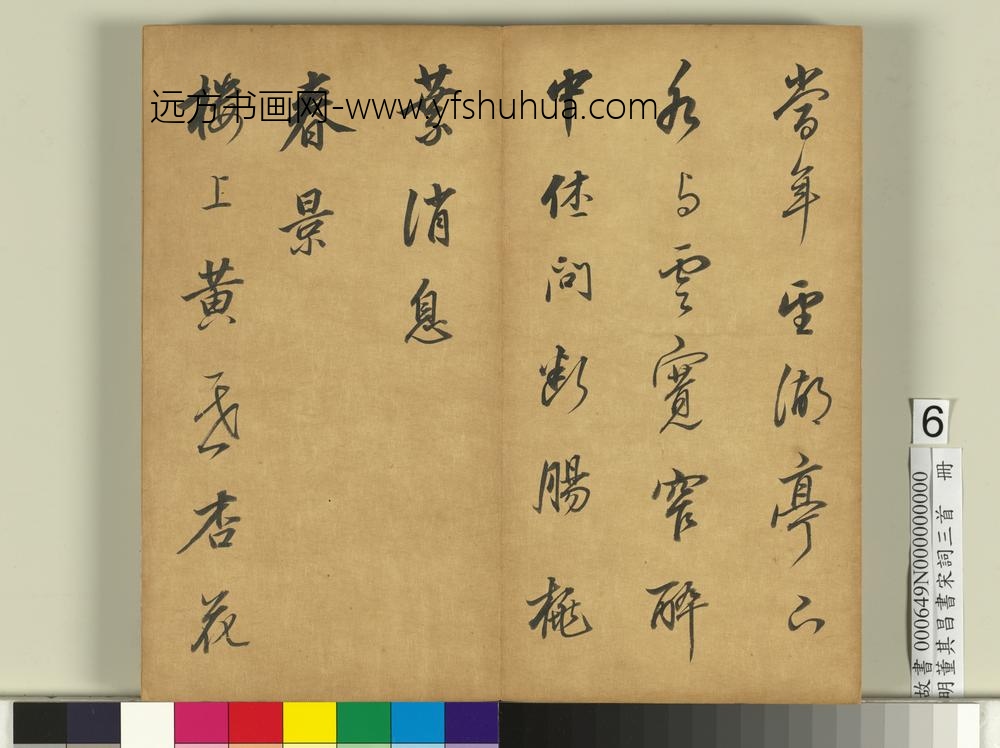 當年望湖亭下
水与雲寬窄醉
中休問斷腸桃
葉消息
春景
樓上黃昏杏花
远方书画网-www.yfshuhua.com
6
故書 000649N000000000
明董其昌書宋詞三首 冊